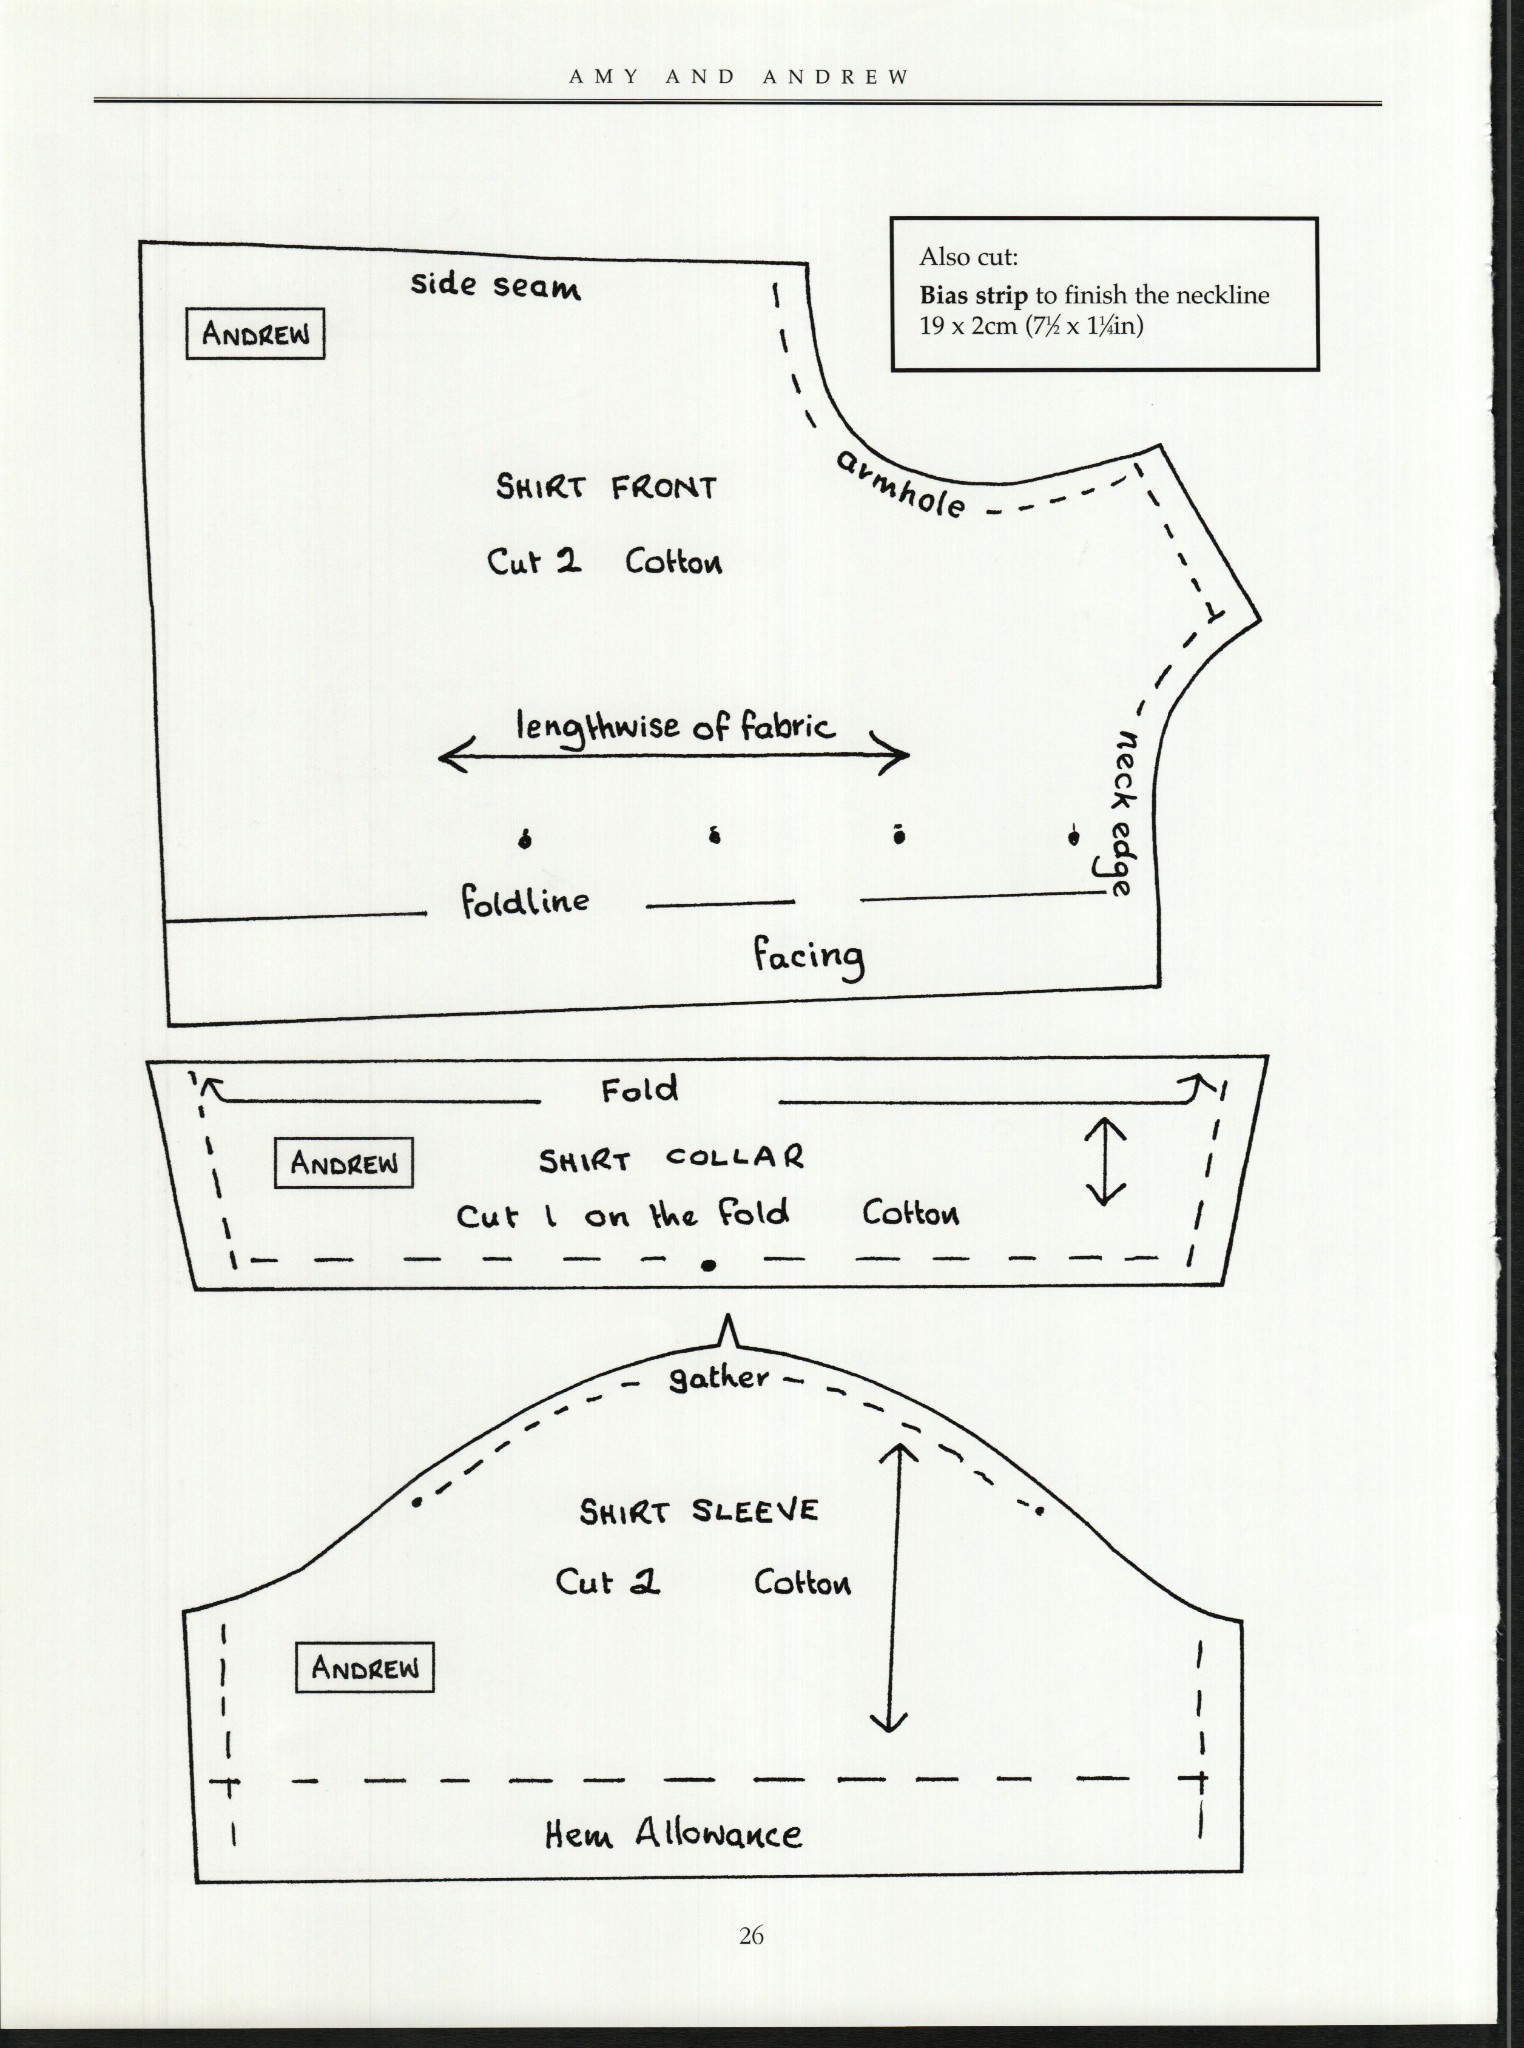 AMY AND ANDREW
Also cut:
Bias strip to finish the neckline
19 x 2cm (7½ x 1¼in)
side seam
ANDREW
armhole
SHIRT FRONT
Cut 2 Cotton
lengthwise of fabric
neck edge
foldline
facing
Fold
ANDREW
SHIRT COLLAR
Cut 1 on the fold Cotton
gather
SHIRT SLEEVE
Cut 2 Cotton
ANDREW
Hem Allowance
26